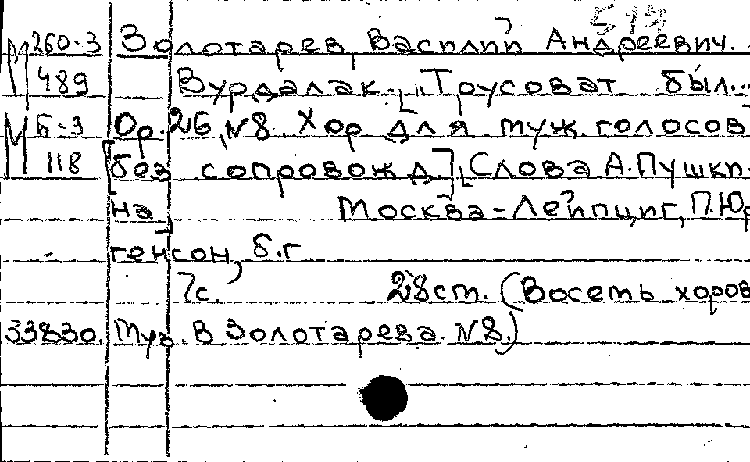 519
М 260-3 Золотарев, Василий Андреевич.
489 Вурдалак. „Трусоват был...
М Б-3 Ор. 26, №8. Хор для муж. голосов
118 [без сопровожд.] Слова А. Пушки-
на Москва-Лейпциг, П. Юр
генсон, б.г
7с. 28cm. (Восемь хоров
33830. Муз. В Золотарева. №8.)